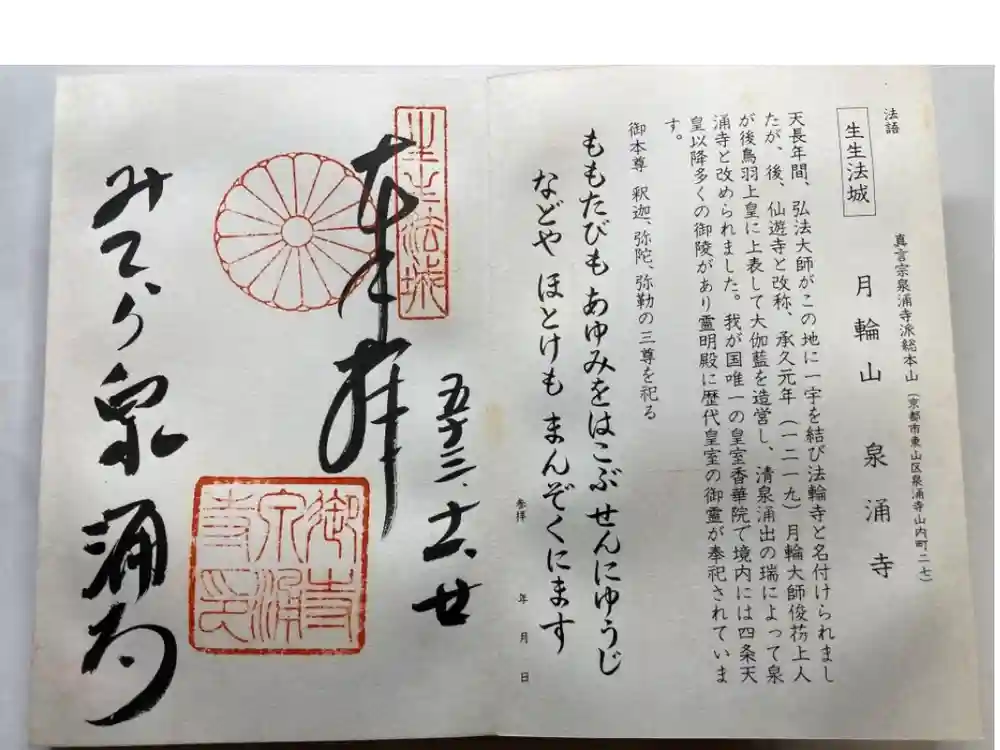 法語
生生法城
真言宗泉涌寺派総本山（京都市東山区泉涌寺山内町二七）
月輪山　泉涌寺
天長年間、弘法大師がこの地に一宇を結び法輪寺と名付けられまし
たが、後、仙遊寺と改称、承久元年（一二一九）月輪大師俊芿上人
が後鳥羽上皇に上表して大伽藍を造営し、清泉涌出の瑞によって泉
涌寺と改められました。我が国唯一の皇室香華院で境内には四条天
皇以降多くの御陵があり霊明殿に歴代皇室の御霊が奉祀されていま
す。
御本尊　釈迦、弥陀、弥勒の三尊を祀る
ももたびも あゆみをはこぶ せんにゅうじ
などや ほとけも まんぞくにます
参拝　年　月　日
生生法城
奉拝
五十三、十二、廿
御寺
泉涌
寺印
みてら泉涌寺